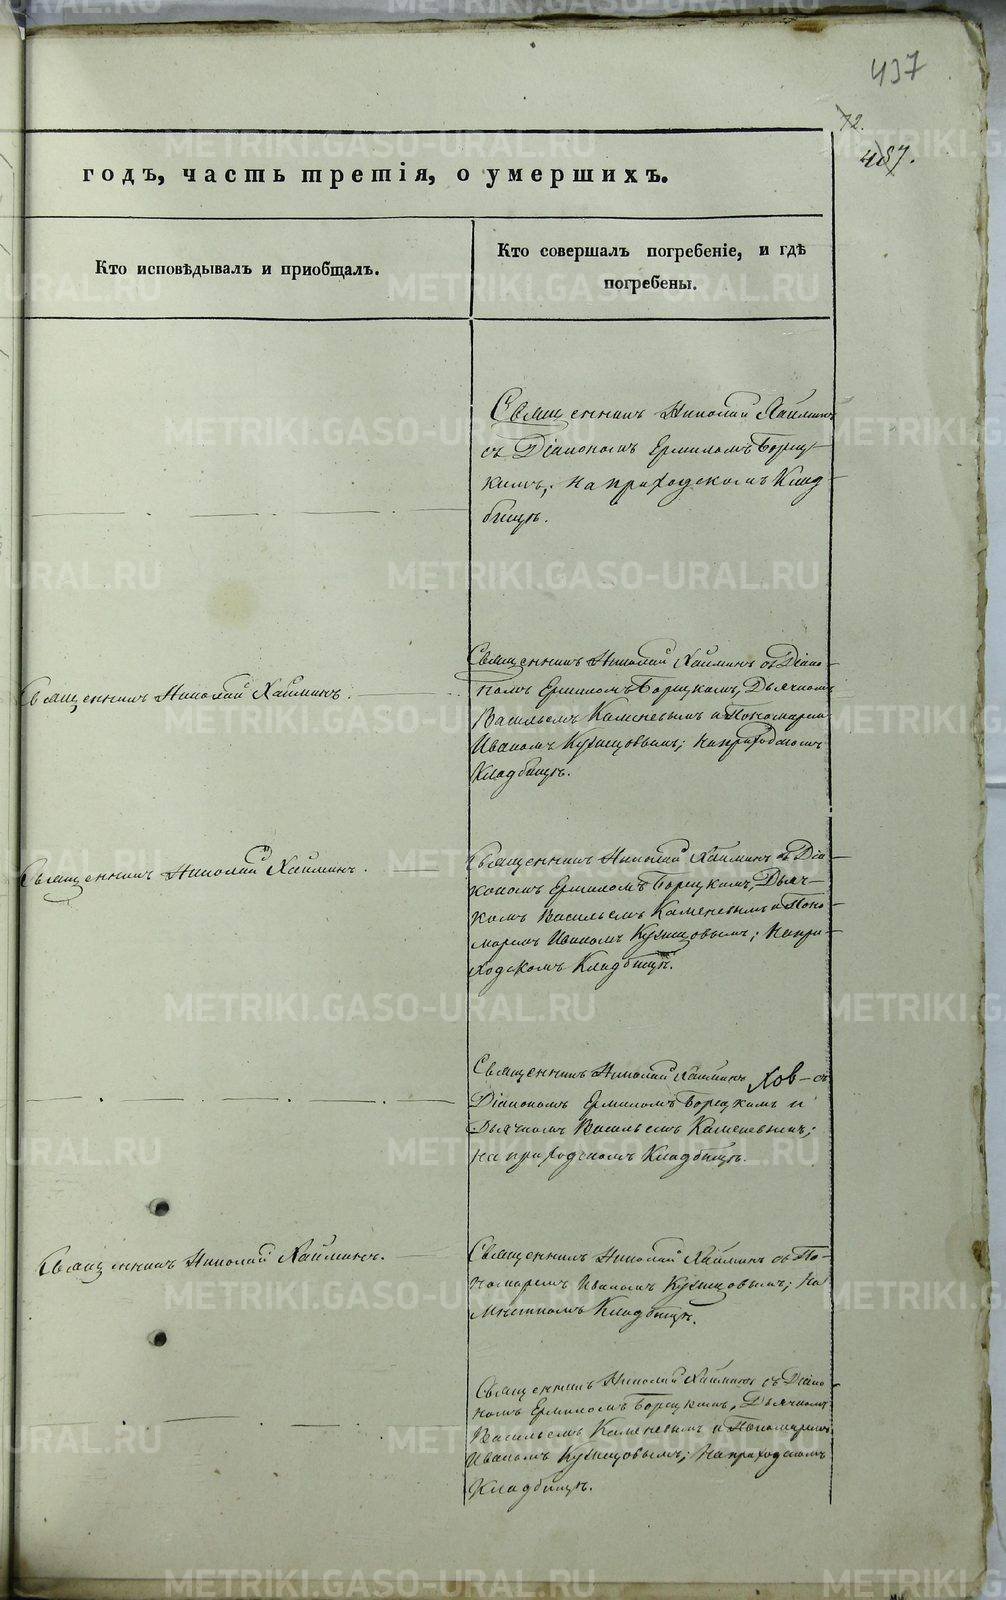 437
72.
487.
годъ, часть третія, о умершихъ.
Кто исповѣдывалъ и приобщалъ.
Кто совершалъ погребеніе, и гдѣ
погребены.
Священникъ Николай Хайминъ
съ Діакономъ Ермиломъ Борец-
кимъ, на приходскомъ Клад-
бищѣ.
Священникъ Николай Хайминъ.
Священникъ Николай Хайминъ съ Діако-
номъ Ермиломъ Борецкимъ, Дьячкомъ
Васильемъ Каменевымъ и Пономарем
Иваномъ Кузнецовымъ; на приходскомъ
Кладбищѣ.
Священникъ Николай Хайминъ.
Священникъ Николай Хайминъ съ Діа-
кономъ Ермиломъ Борецкимъ, Дьяч-
комъ Васильемъ Каменевымъ и Поно-
маремъ Иваномъ Кузнецовымъ; на при-
ходскомъ Кладбищѣ.
Священникъ Николай Хайминъ съ
Діакономъ Ермиломъ Борецкимъ и
Дьячкомъ Васильемъ Каменевымъ;
на приходскомъ Кладбищѣ.
Священникъ Николай Хайминъ.
Священникъ Николай Хайминъ съ По-
номаремъ Иваномъ Кузнецовымъ; на
мѣстномъ Кладбищѣ.
Священникъ Николай Хайминъ съ Діако-
номъ Ермиломъ Борецкимъ, Дьячкомъ
Васильемъ Каменевымъ и Пономаремъ
Иваномъ Кузнецовымъ; на приходскомъ
Кладбищѣ.
METRIKI.GASO-URAL.RU